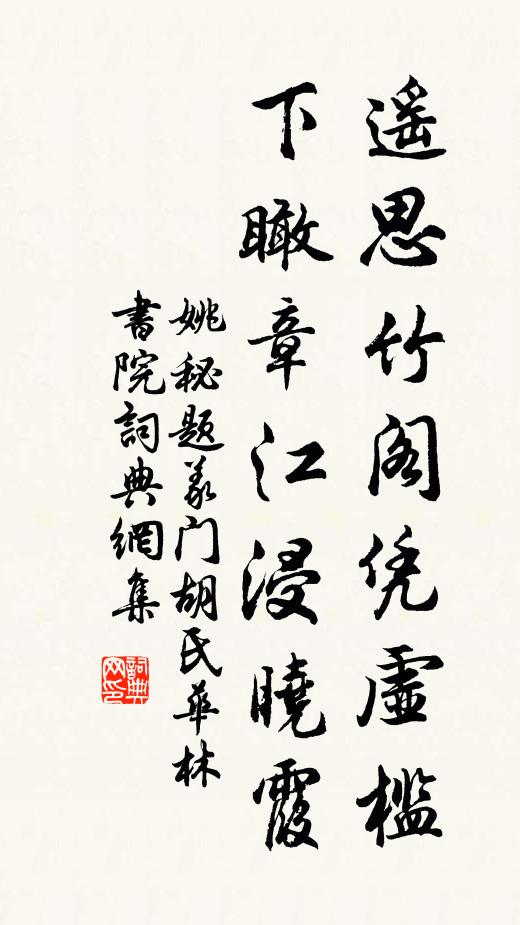 遥思竹阁凭虚槛
下瞰章江浸曉霞
姚秘题义门胡氏华林
書院詞典網集
詞典网印